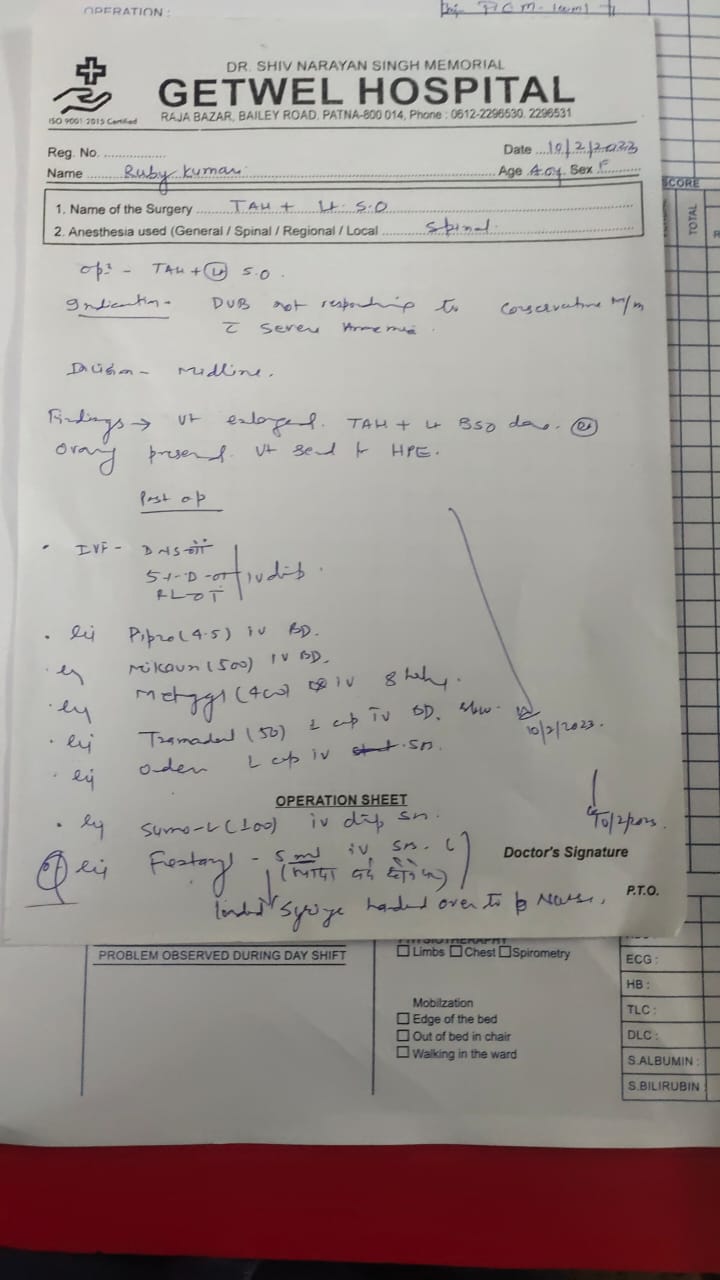 OPERATION :
DR. SHIV NARAYAN SINGH MEMORIAL
GETWEL HOSPITAL
ISO 9001:2015 Certified
RAJA BAZAR, BAILEY ROAD, PATNA-800 014, Phone : 0612-2296530, 2296531
Reg. No. ................ Date ...10/2/2023
Name ........ Ruby Kumari ........ Age 40y Sex F
1. Name of the Surgery ....... TAH + Lt S.O
2. Anesthesia used (General / Spinal / Regional / Local ....... Spinal
Op: - TAH + Lt S.O.
Indication - DUB not responding to conservative M/m
c Severe Anaemia.
Incision - Midline.
Findings → Ut enlarged. TAH + Lt BSO done. Rt
ovary present. Ut send to HPE.
Post op
• IVF - DNS
5%D iv drip.
RL
• Inj Pipzo (4.5) iv BD.
• Inj Mikacin (500) iv BD.
• Inj Metrogyl (400) iv 8 hrly.
• Inj Tramadol (50) 1 amp iv BD. slow
10/2/2023.
• Inj 1 amp iv sos.
OPERATION SHEET
• Inj Sumo-L (100) iv drip sos.
10/2/2023.
Inj - 5 ml iv sos. (
Doctor's Signature
loaded Syringe handed over to Nurse.
P.T.O.
SCORE
TOTAL
PROBLEM OBSERVED DURING DAY SHIFT
PHYSIOTHERAPHY
Limbs Chest Spirometry
Mobilzation
Edge of the bed
Out of bed in chair
Walking in the ward
ECG :
HB :
TLC :
DLC :
S.ALBUMIN :
S.BILIRUBIN